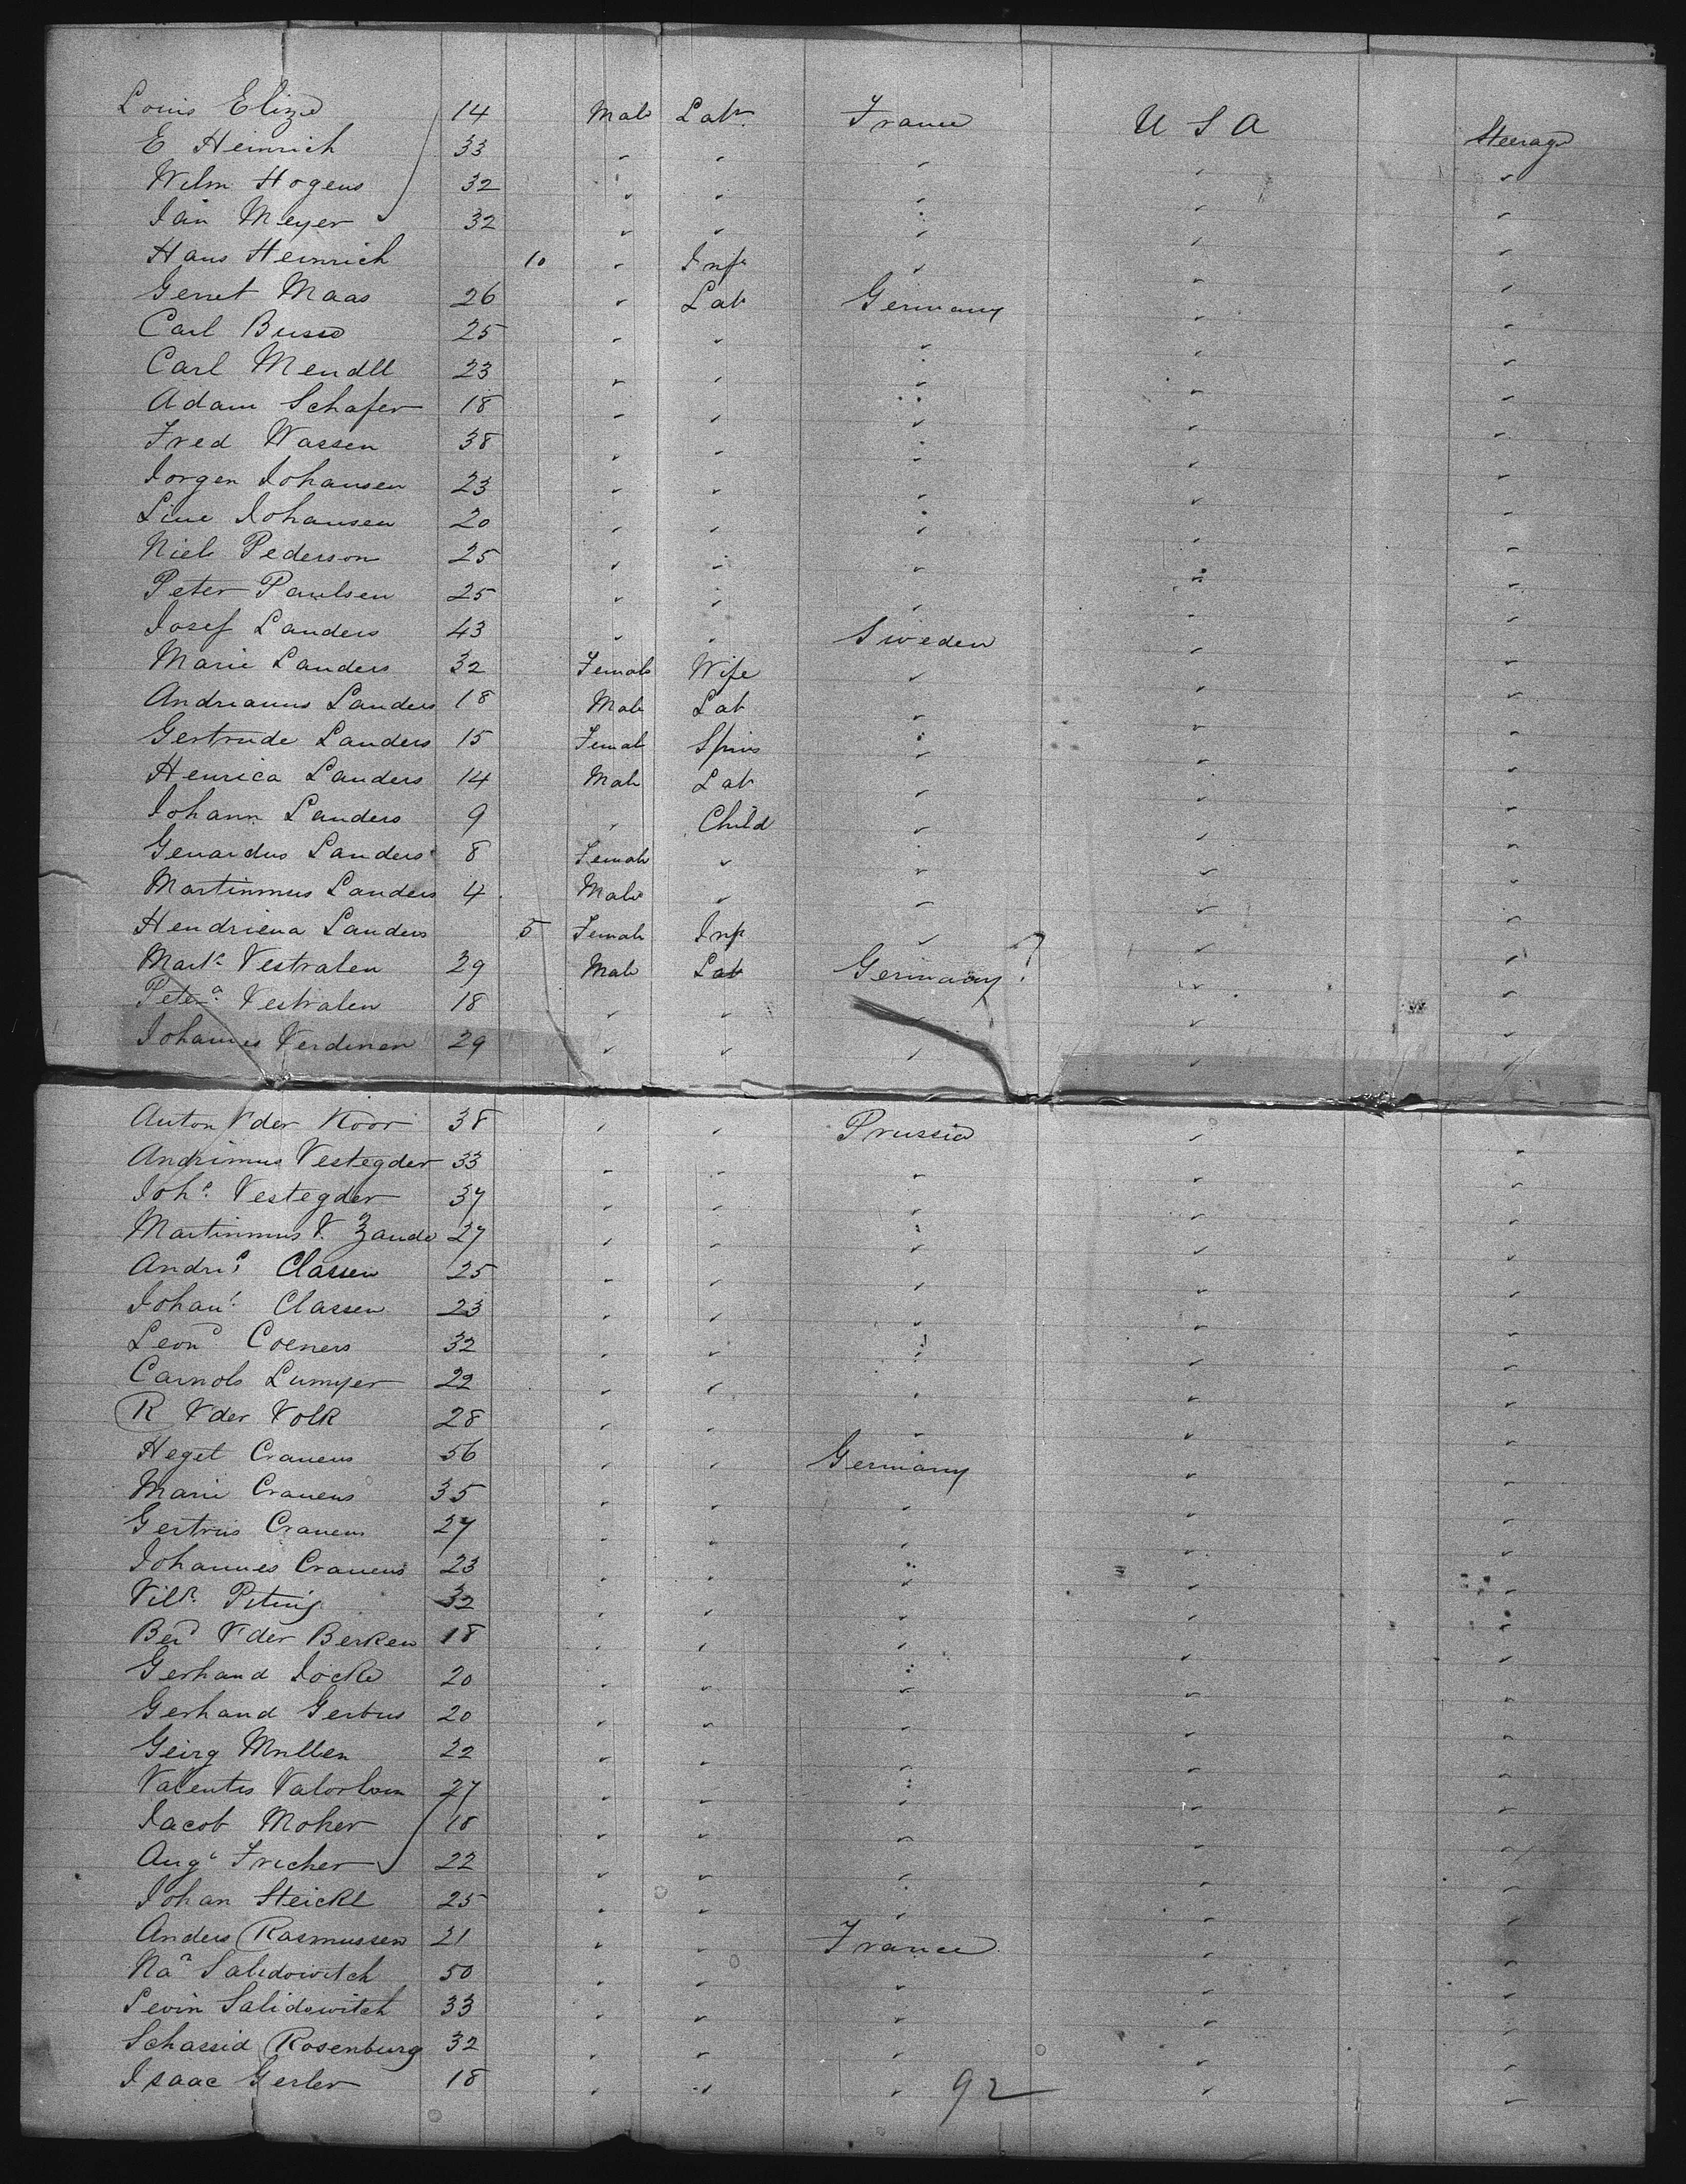 Louis Elize 14 Male Labr France U S A Steerage
E Heinrich 33 " " " " "
Wilm Hogens 32 " " " " "
Jan Meyer 32 " " " " "
Hans Heinrich 10 " Inft " " "
Gerret Maas 26 " Lab Germany " "
Carl Busse 25 " " " " "
Carl Mendll 23 " " " " "
Adam Schafer 18 " " " " "
Fred Wassen 38 " " " " "
Jorgen Johansen 23 " " " " "
Line Johansen 20 " " " " "
Niels Pederson 25 " " " " "
Peter Paulsen 25 " " " " "
Josef Landers 43 " " Sweden " "
Marie Landers 32 Female Wife " " "
Andrianus Landers 18 Male Lab " " "
Gertrude Landers 15 Female Spins " " "
Henrica Landers 14 Male Lab " " "
Johann Landers 9 " Child " " "
Genardus Landers 8 Female " " " "
Martinmus Landers 4 Male " " " "
Hendriena Landers 5 Female Inft " " "
Mark Vestralen 29 Male Lab Germany " "
Peter Vestralen 18 " " " " "
Johannes Verdinen 29 " " " " "
Anton V der Koor 38 " " Prussia " "
Andrimus Vestegder 33 " " " " "
Johs Vestegder 37 " " " " "
Martinmus V. Zande 27 " " " " "
Andrs Classen 25 " " " " "
Johans Classen 23 " " " " "
Leond Coeners 32 " " " " "
Carnols Lumyer 22 " " " " "
R V der Volk 28 " " " " "
Heget Cranens 56 " " Germany " "
Marie Cranens 35 " " " " "
Gertrus Cranens 27 " " " " "
Johannes Cranens 23 " " " " "
Vilh Peting 32 " " " " "
Bed V der Berken 18 " " " " "
Gerhand Jocke 20 " " " " "
Gerhand Gerbus 20 " " " " "
Geirg Mullen 22 " " " " "
Valentis 27 " " " " "
Jacob Moher 18 " " " " "
Augt Fricher 22 " " " " "
Johan Steickl 25 " " " " "
Anders Rasmussen 21 " " France " "
Na Salidowitch 50 " " " " "
Levin Salidowitch 33 " " " " "
Schassid Rosenburg 32 " " " " "
Isaac Gerler 18 " " " " "
92